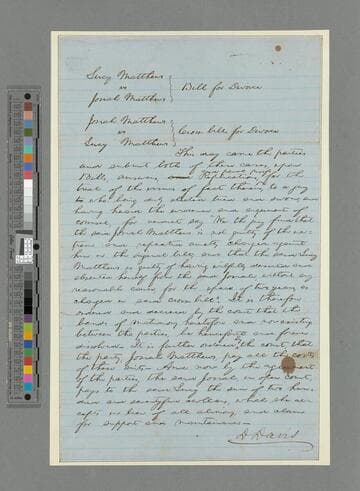 Lucy Matthews
vs
Josiah Matthews
Bill for Divorce
Josiah Matthews
vs
Lucy Matthews
Cross bill for Divorce
This day came the parties
and submit both of these cases, upon
Bills, answers, Replications, for the
trial of the issues of fact therein, to a jury
who being duly elected tried and sworn and
having heard the evidence and argument of
counsel for verdict say We the jury find that
the said Josiah Matthews is not guilty of the
charges against
him in the original bill, and that the said Lucy
Matthews is guilty of having wilfully deserted and
absented herself from the said Josiah without any
reasonable cause for the space of two years as
charged in said cross bill. It is therefore
ordered and decreed by the court that the
bonds of matrimony heretofore existing
between the parties be henceforth and forever
dissolved. It is further ordered by the court, that
the party, Josiah Matthews, pay all the costs
of these suits. And now by the agreement
of the parties the said Josiah, in open court,
pays to the said Lucy the sum of two hun-
dred and seventy five dollars, which she ac-
cepts in lieu of all alimony and claims
for support and maintenance.
D Davis